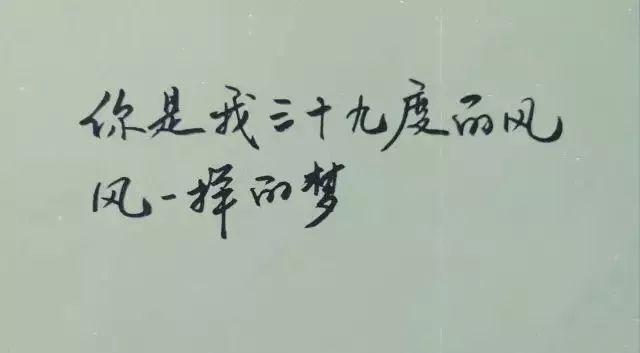 你是我三十九度的风
风一样的梦